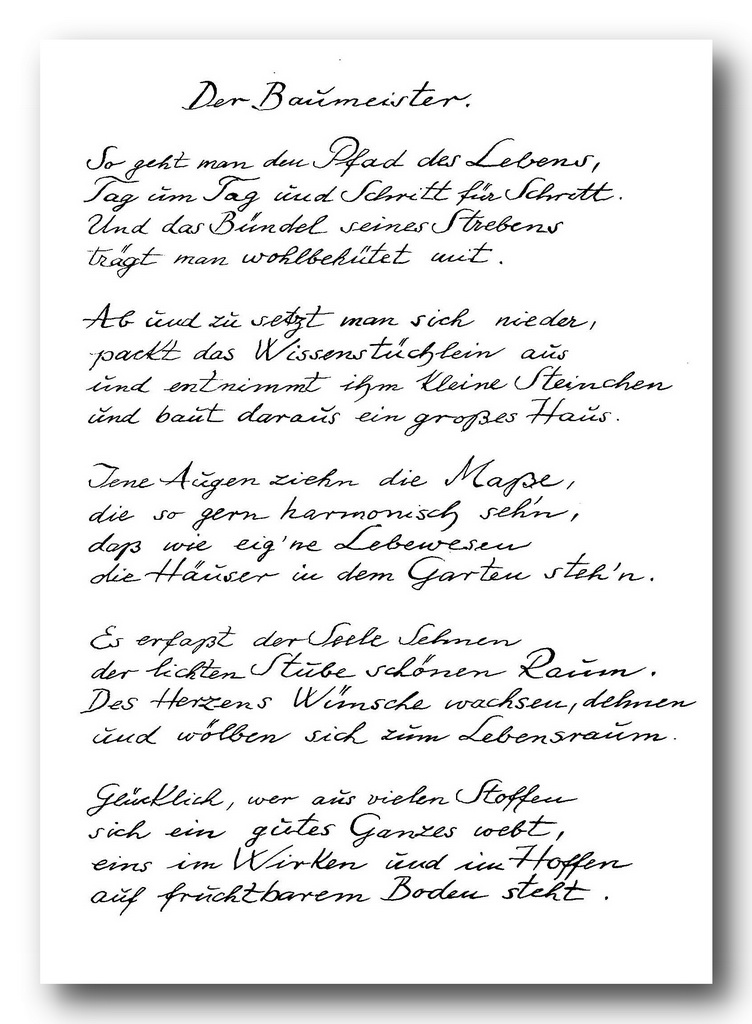 Der Baumeister.
So geht man den Pfad des Lebens,
Tag um Tag und Schritt für Schritt.
Und das Bündel seines Strebens
trägt man wohlbehütet mit.
Ab und zu setzt man sich nieder,
packt das Wissenstüchlein aus
und entnimmt ihm kleine Steinchen
und baut daraus ein großes Haus.
Jene Augen ziehn die Maße,
die so gern harmonisch seh'n,
daß wie eig'ne Lebewesen
die Häuser in dem Garten steh'n.
Es erfaßt der Seele Sehnen
der lichten Stube schönen Raum.
Des Herzens Wünsche wachsen, dehnen
und wölben sich zum Lebensraum.
Glücklich, wer aus vielen Stoffen
sich ein gutes Ganzes webt,
eins im Wirken und im Hoffen
auf fruchtbarem Boden steht.